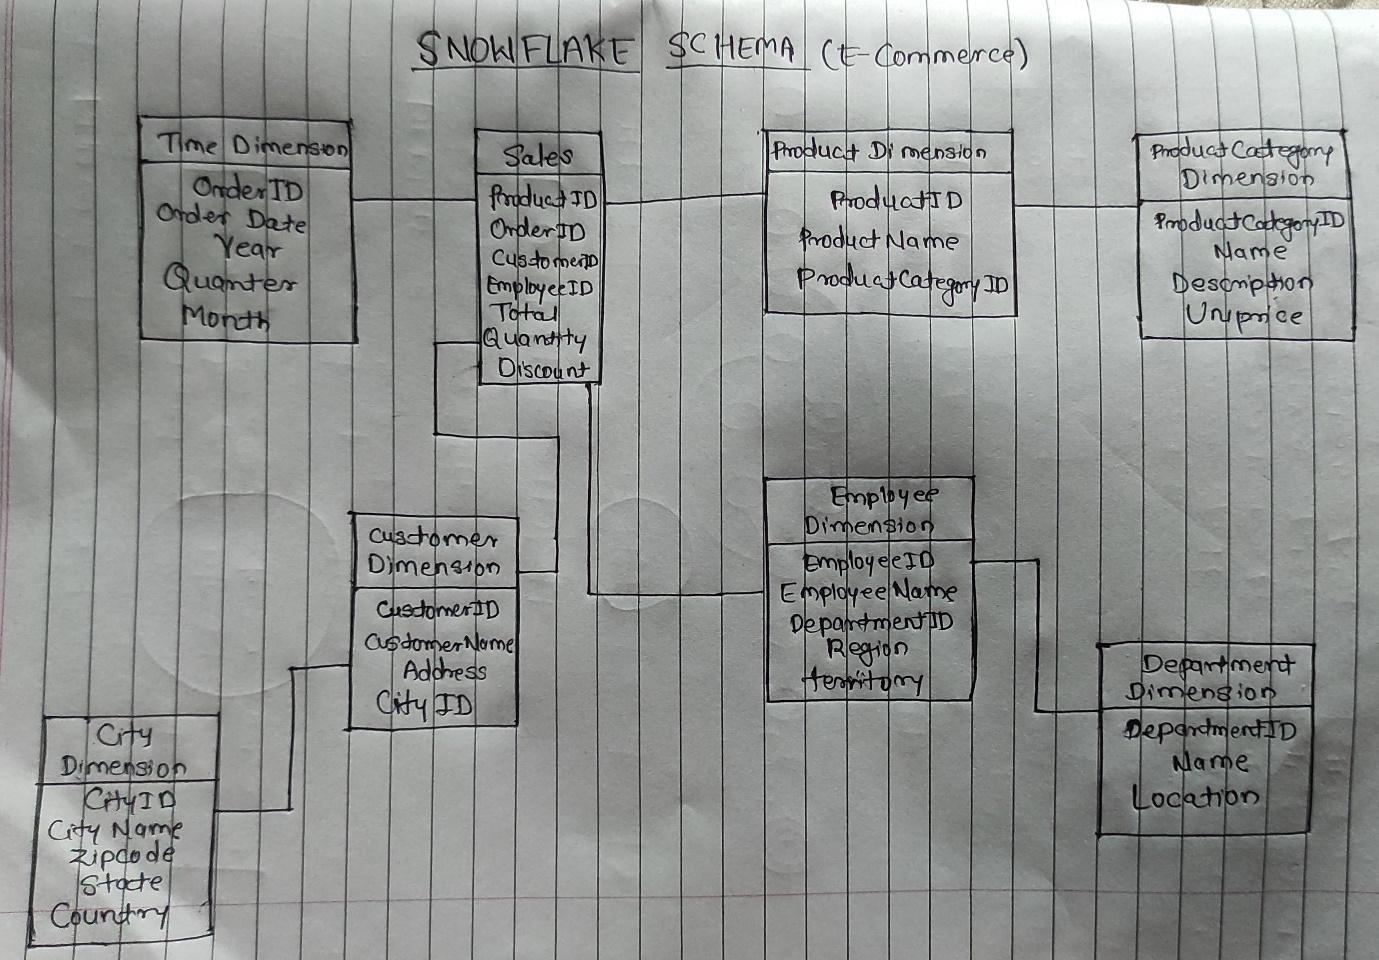 SNOWFLAKE SCHEMA (E-Commerce)
Time Dimension
OrderID
Order Date
Year
Quarter
Month
Sales
ProductID
OrderID
CustomerID
EmployeeID
Total
Quantity
Discount
Product Dimension
ProductID
ProductName
ProductCategoryID
ProductCategory
Dimension
ProductCategoryID
Name
Description
Uniprice
Customer
Dimension
CustomerID
CustomerName
Address
City ID
Employee
Dimension
EmployeeID
EmployeeName
DepartmentID
Region
territory
City
Dimension
CityID
City Name
Zipcode
State
Country
Department
Dimension
DepartmentID
Name
Location